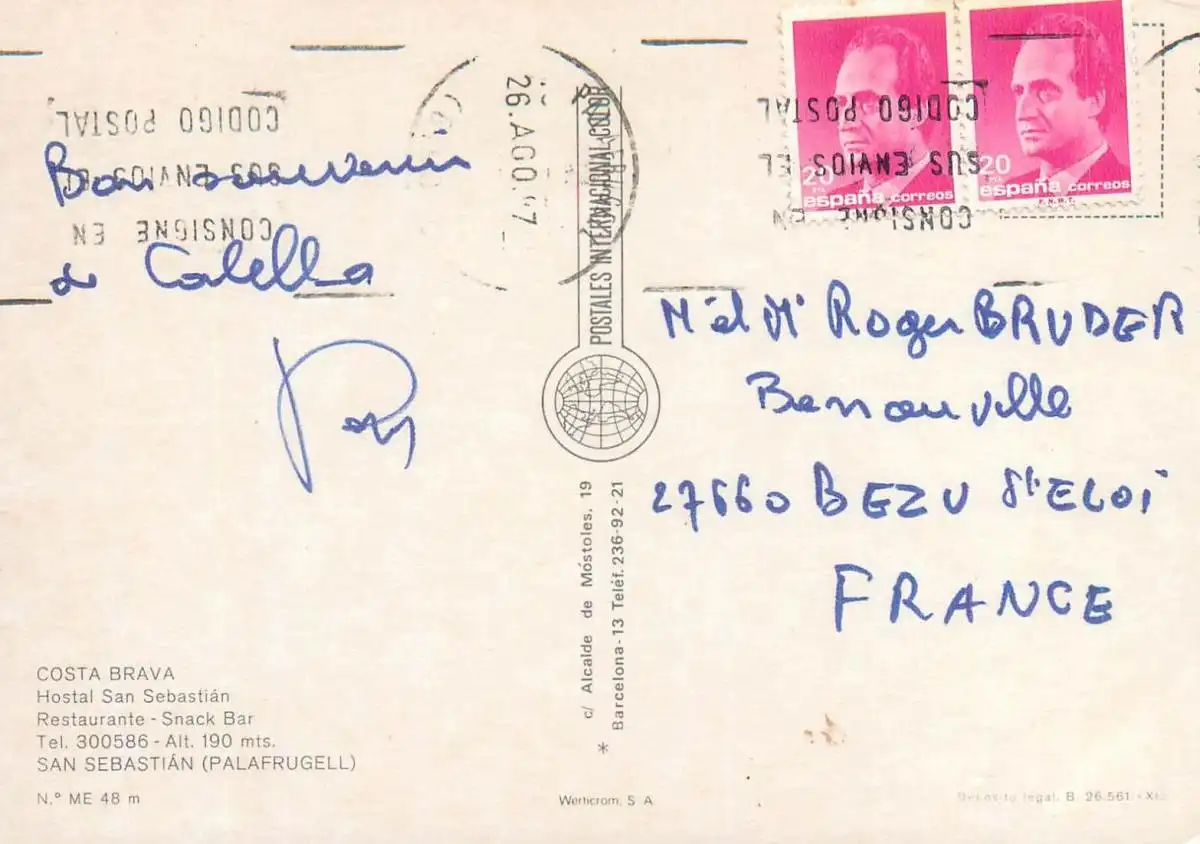 CODIGO POSTAL
SUS ENVIOS EL
CONSIGNE EN
26.AGO.
Bon souvenir
de Calella
COSTA BRAVA
Hostal San Sebastián
Restaurante - Snack Bar
Tel. 300586 - Alt. 190 mts.
SAN SEBASTIÁN (PALAFRUGELL)
N.º ME 48 m
POSTALES INTERNACIONAL COLOR
c/ Alcalde de Móstoles, 19
Barcelona-13 Teléf. 236-92-21
*
Werticrom, S A.
20
PTA
españa correos
20
PTA
españa correos
F.N.M.T.
CODIGO POSTAL
SUS ENVIOS EL
CONSIGNE EN
Mr et Me Roger BRUDER
27660 BEZU St ELOI
FRANCE
Deposito legal. B. 26.561